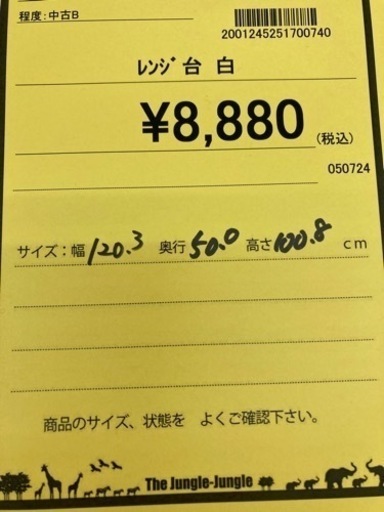 程度:中古B
2001245251700740
ﾚﾝｼﾞ台 白
¥8,880(税込)
050724
サイズ:幅 120.3 奥行 50.0 高さ 100.8 cm
商品のサイズ、状態を よくご確認下さい。
The Jungle-Jungle